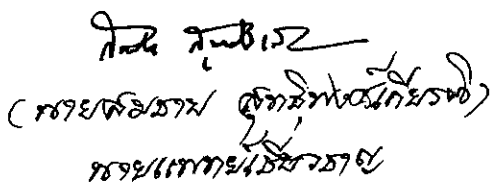 (นายสมชาย สุทธิพงษ์เกียรติ)
นายแพทย์เชี่ยวชาญ